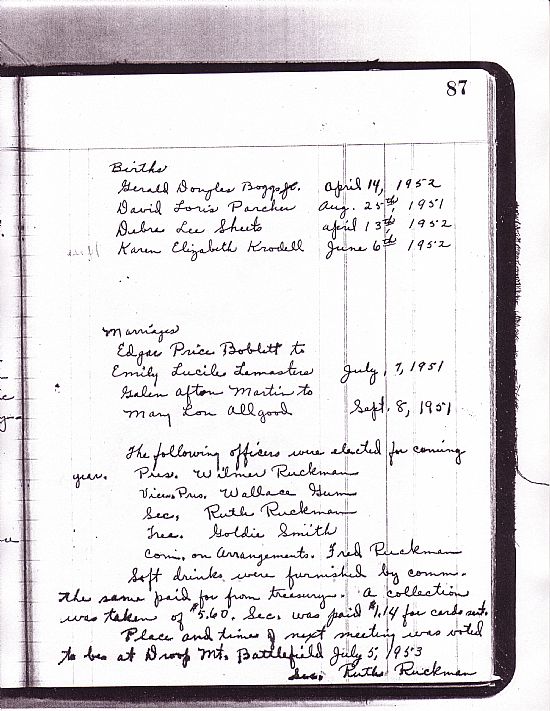 87
Births
Gerald Douglas Boggs Jr. April 14, 1952
David Loris Parcher Aug. 25th, 1951
Debra Lee Sheets April 13th, 1952
Karen Elizabeth Krodell June 6th 1952
Marriages
Edgar Price Boblett to
Emily Lucile Lamasters July, 7, 1951
Galen Afton Martin to
Mary Lou Allgood Sept. 8, 1951
The following officers were elected for coming
year. Pres. Wilmer Ruckman
Vice. Pres. Wallace Gum
Sec, Ruth Ruckman
Trea. Goldie Smith
Com. on Arrangements. Fred Ruckman
Soft drinks were furnished by comm.
the same paid for from treasury. A collection
was taken of $5.60. Sec. was paid $1.14 for cards sent.
Place and time of next meeting was voted
to be at Droop Mt. Battlefield July 5, 1953
Sec. Ruth Ruckman